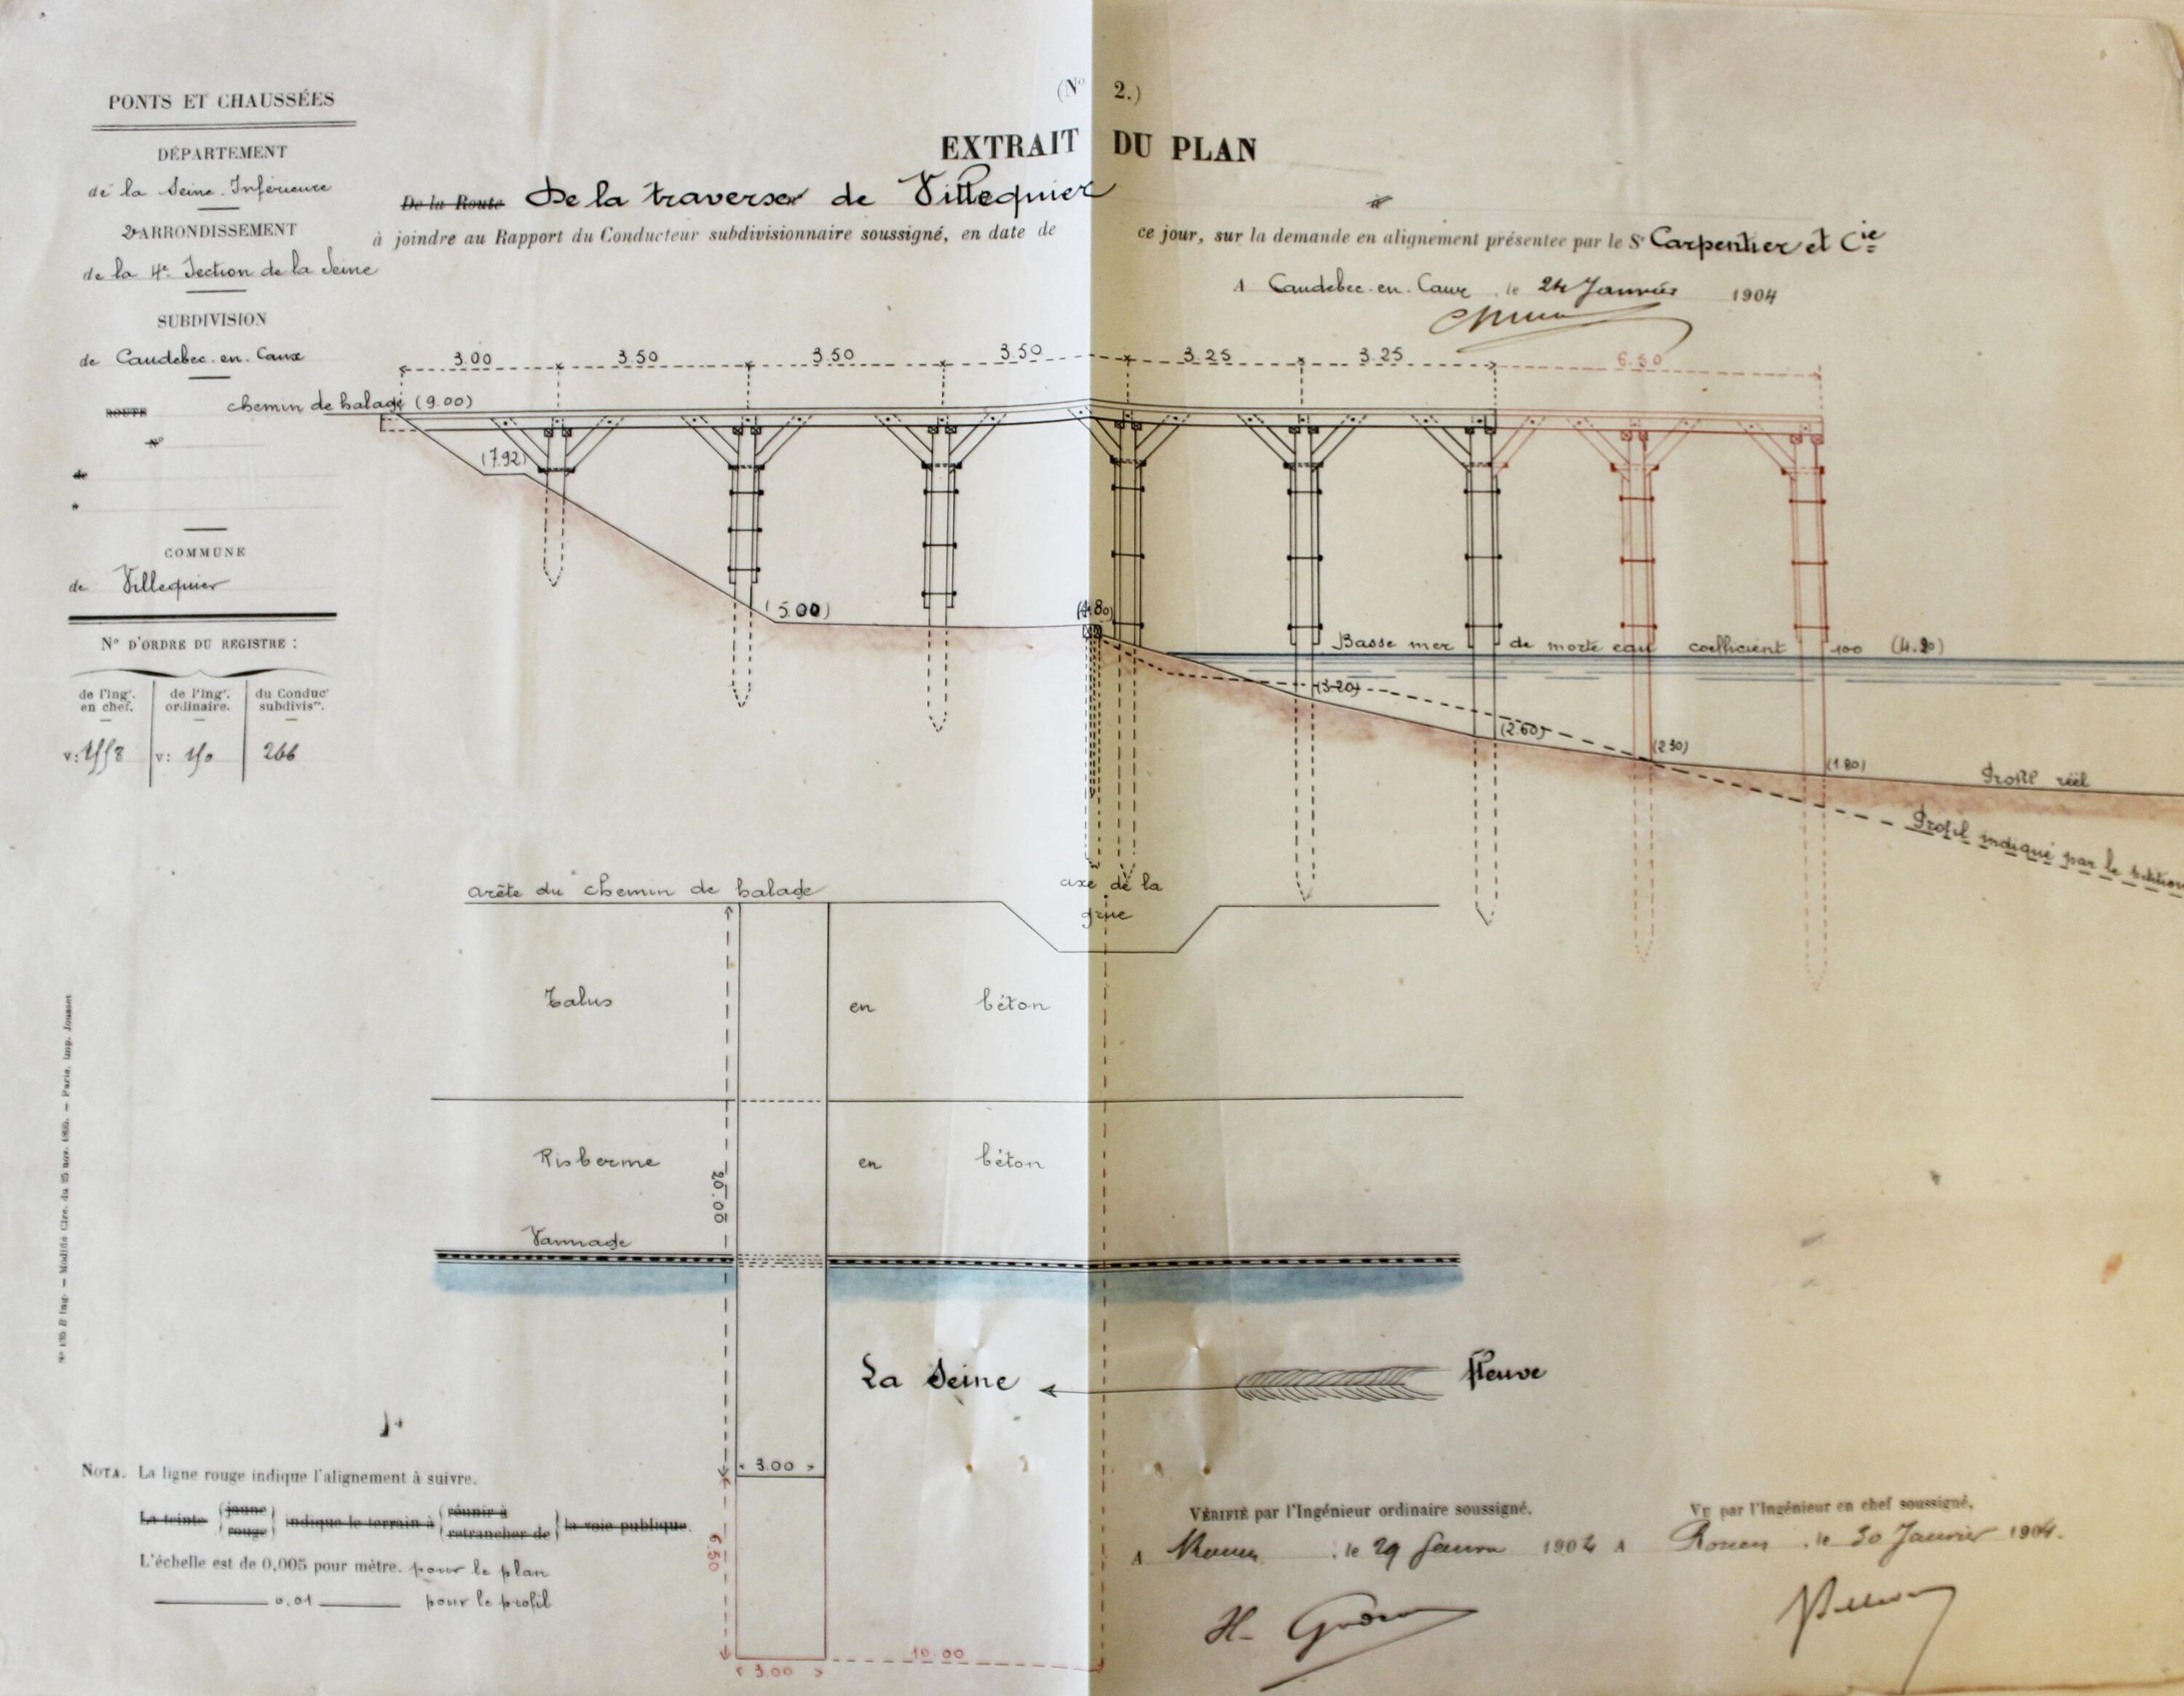 (N° 2.)
EXTRAIT DU PLAN
De la Route De la traverse de Villequier
à joindre au Rapport du Conducteur subdivisionnaire soussigné, en date de ce jour, sur la demande en alignement présentée par le Sr Carpentier et Cie
A Caudebec-en-Caux, le 24 Janvier 1904
PONTS ET CHAUSSÉES
DÉPARTEMENT
de la Seine-Inférieure
2e ARRONDISSEMENT
de la 4e Section de la Seine
SUBDIVISION
de Caudebec-en-Caux
ROUTE
N°
de
COMMUNE
de Villequier
N° D'ORDRE DU REGISTRE :
de l'ingr. en chef.
de l'ingr. ordinaire.
du Conducr subdivisre.
266
3.00 3.50 3.50 3.50 3.25 3.25 6.50
chemin de halage (9.00)
(7.92)
(5.00)
(4.80)
Basse mer de morte eau coefficient 100 (4.20)
(3.20)
(2.60)
(2.30)
(1.80)
Profil réel
Profil indiqué par le
arête du chemin de halage
axe de la
grue
Talus en béton
Risberme en béton
20.00
Vannage
La Seine Fleuve
3.00
6.50
3.00
10.00
N° 135 B Ing. — Modèle Circ. du 25 nov. — Paris. Imp. Jousset
NOTA. La ligne rouge indique l'alignement à suivre.
La teinte jaune rouge indique le terrain à réunir à retrancher de la voie publique.
L'échelle est de 0,005 pour mètre. pour le plan
0.01 pour le profil
VÉRIFIÉ par l'Ingénieur ordinaire soussigné.
A Rouen, le 29 Janvier 1904
VU par l'Ingénieur en chef soussigné,
A Rouen, le 30 Janvier 1904.